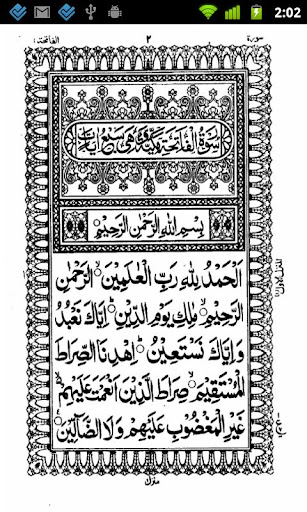 2:02
سورة ٢ الفاتحة١
سُوْرَةُ الْفَاتِحَةِ مَكِّيَّةٌ وَّهِيَ سَبْعُ اٰيَاتٍ
بِسْمِ اللهِ الرَّحْمٰنِ الرَّحِيْمِ
اَلْحَمْدُ لِلّٰهِ رَبِّ الْعٰلَمِيْنَ ۙ الرَّحْمٰنِ
الرَّحِيْمِ ۙ مٰلِكِ يَوْمِ الدِّيْنِ ؕ اِيَّاكَ نَعْبُدُ
وَاِيَّاكَ نَسْتَعِيْنُ ؕ اِهْدِنَا الصِّرَاطَ
الْمُسْتَقِيْمَ ۙ صِرَاطَ الَّذِيْنَ اَنْعَمْتَ عَلَيْهِمْ ۙ
غَيْرِ الْمَغْضُوْبِ عَلَيْهِمْ وَلَا الضَّآلِّيْنَ
منزل